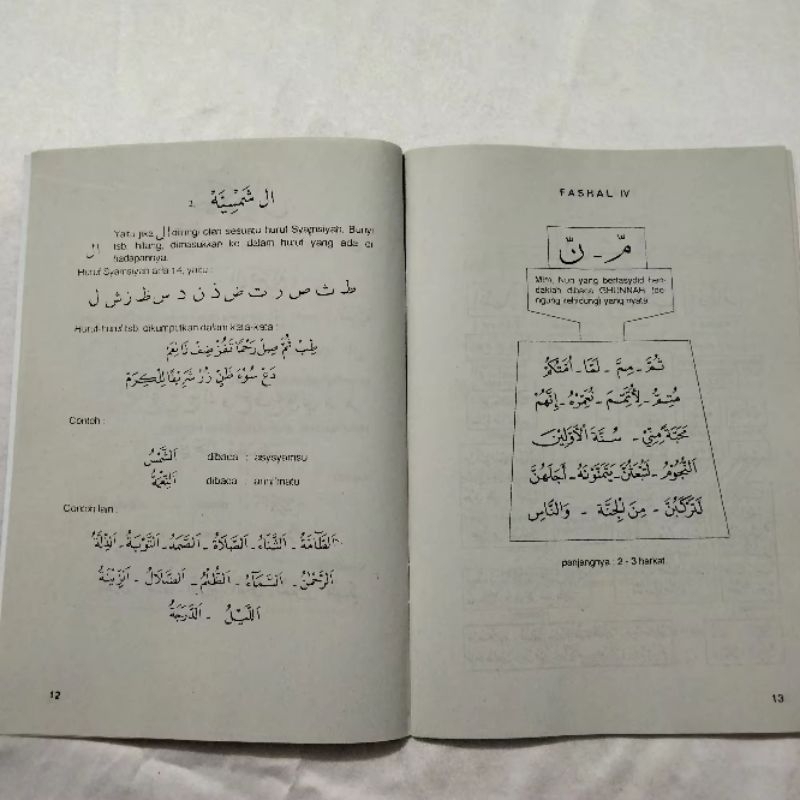 2. ال شَمْسِيَّةْ
Yaitu jika ال diiringi oleh sesuatu huruf Syamsiyah. Bunyi
ال tsb. hilang, dimasukkan ke dalam huruf yang ada di
hadapannya.
Huruf Syamsiyah ada 14, yaitu :
ط ث ص ر ت ض ذ ن د س ظ ز ش ل
Huruf-huruf tsb. dikumpulkan dalam kata-kata :
طِبْ ثُمَّ صِلْ رَحْمًا تَفُزْ ضِفْ ذَا نِعَمْ
دَعْ سُوْءَ ظَنٍّ زُرْ شَرِيْفًا لِلْكَرَمْ
Contoh :
اَلشَّمْسُ dibaca : asysyamsu
اَلنِّعْمَةُ dibaca : anni'matu
Contoh lain :
اَلطَّآمَّةُ - اَلثَّنَاءُ - اَلصَّلَاةُ - اَلصَّمَدُ - اَلتَّوْبَةُ - اَلذِّلَّةُ
اَلرَّحْمٰنُ - اَلسَّمَآءُ - اَلظُّلْمُ - اَلضَّلَالُ - اَلزِّيْنَةُ
اَللَّيْلُ - اَلدَّرَجَةُ
12
FASHAL IV
مّ - نّ
Mim, Nun yang bertasydid hen-
daklah dibaca GHUNNAH (de-
ngung rehidung) yang nyata
ثُمَّ - مِمَّ - لَمَّا -
مُتِمُّ - - - إِنَّهُمْ
- سُنَّةَ الْأَوَّلِيْنَ
اَلنُّجُوْمُ - - يَتَمَنَّوْنَهُ - أَجَلَهُنَّ
لَتَرْكَبُنَّ - مِنَ الْجِنَّةِ - وَالنَّاسِ
panjangnya : 2 - 3 harkat.
13